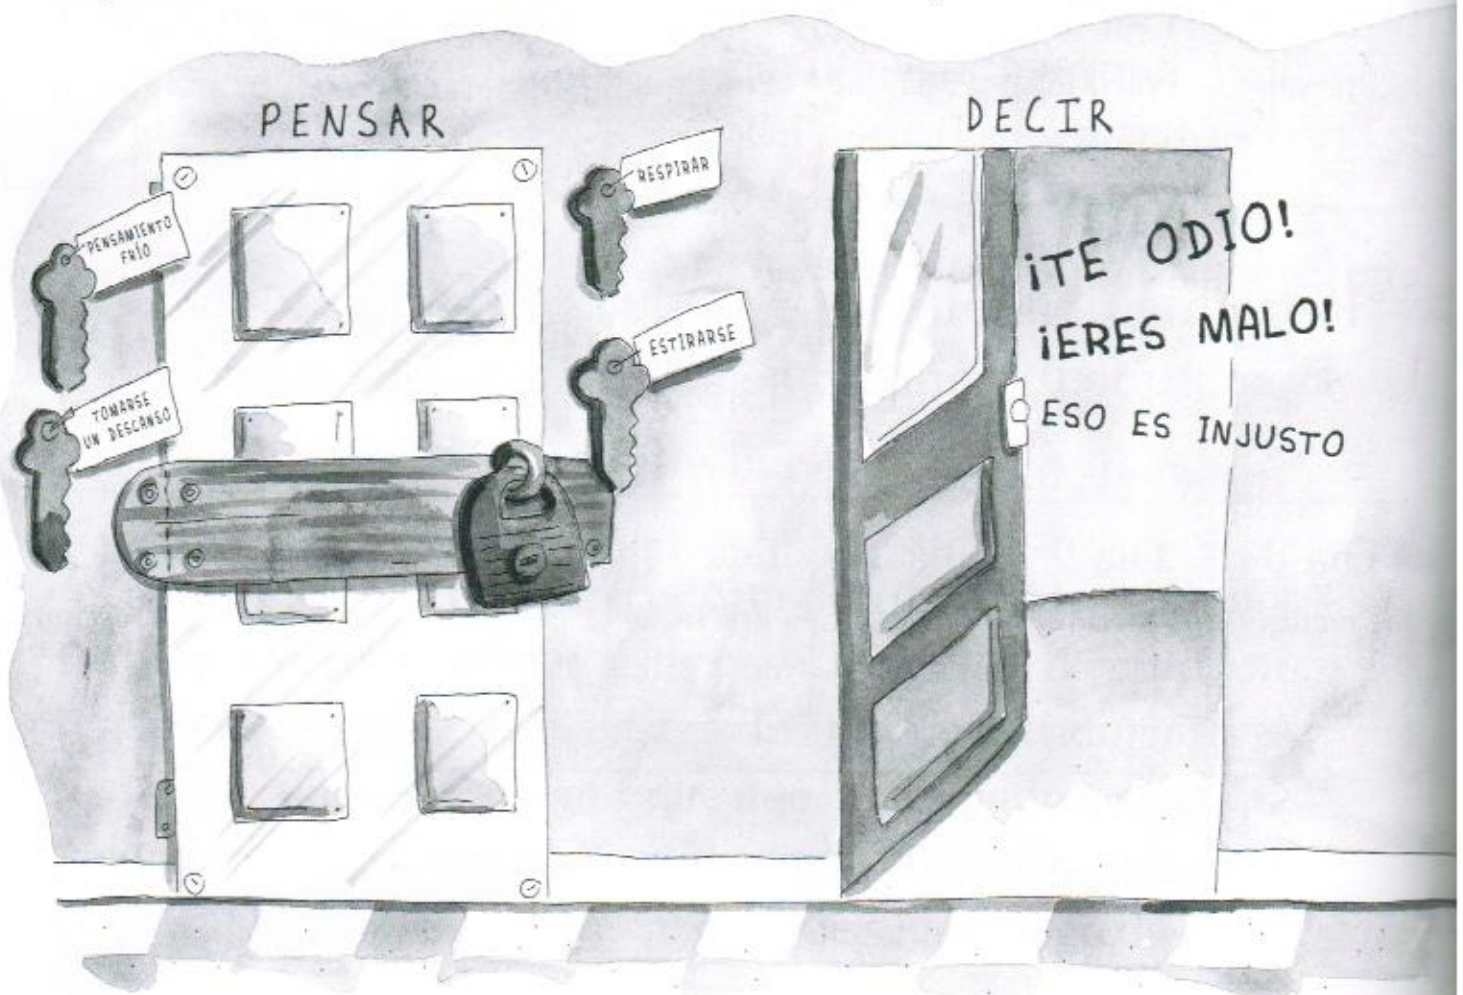 PENSAR
PENSAMIENTO
FRÍO
TOMARSE
UN DESCANSO
RESPIRAR
ESTIRARSE
DECIR
¡TE ODIO!
¡ERES MALO!
ESO ES INJUSTO